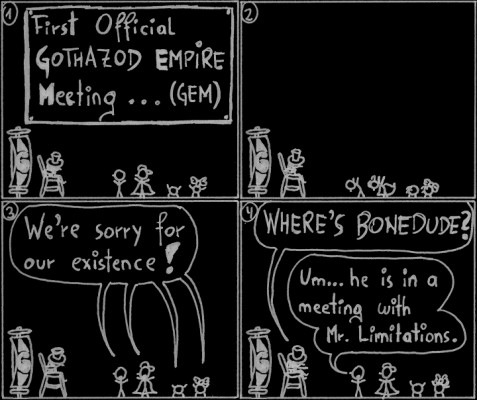 1
First Official
GOTHAZOD EMPIRE
Meeting ... (GEM)
2
3
We're sorry for
our existence!
4
WHERE'S BONEDUDE?
Um... he is in a
meeting with
Mr. Limitations.